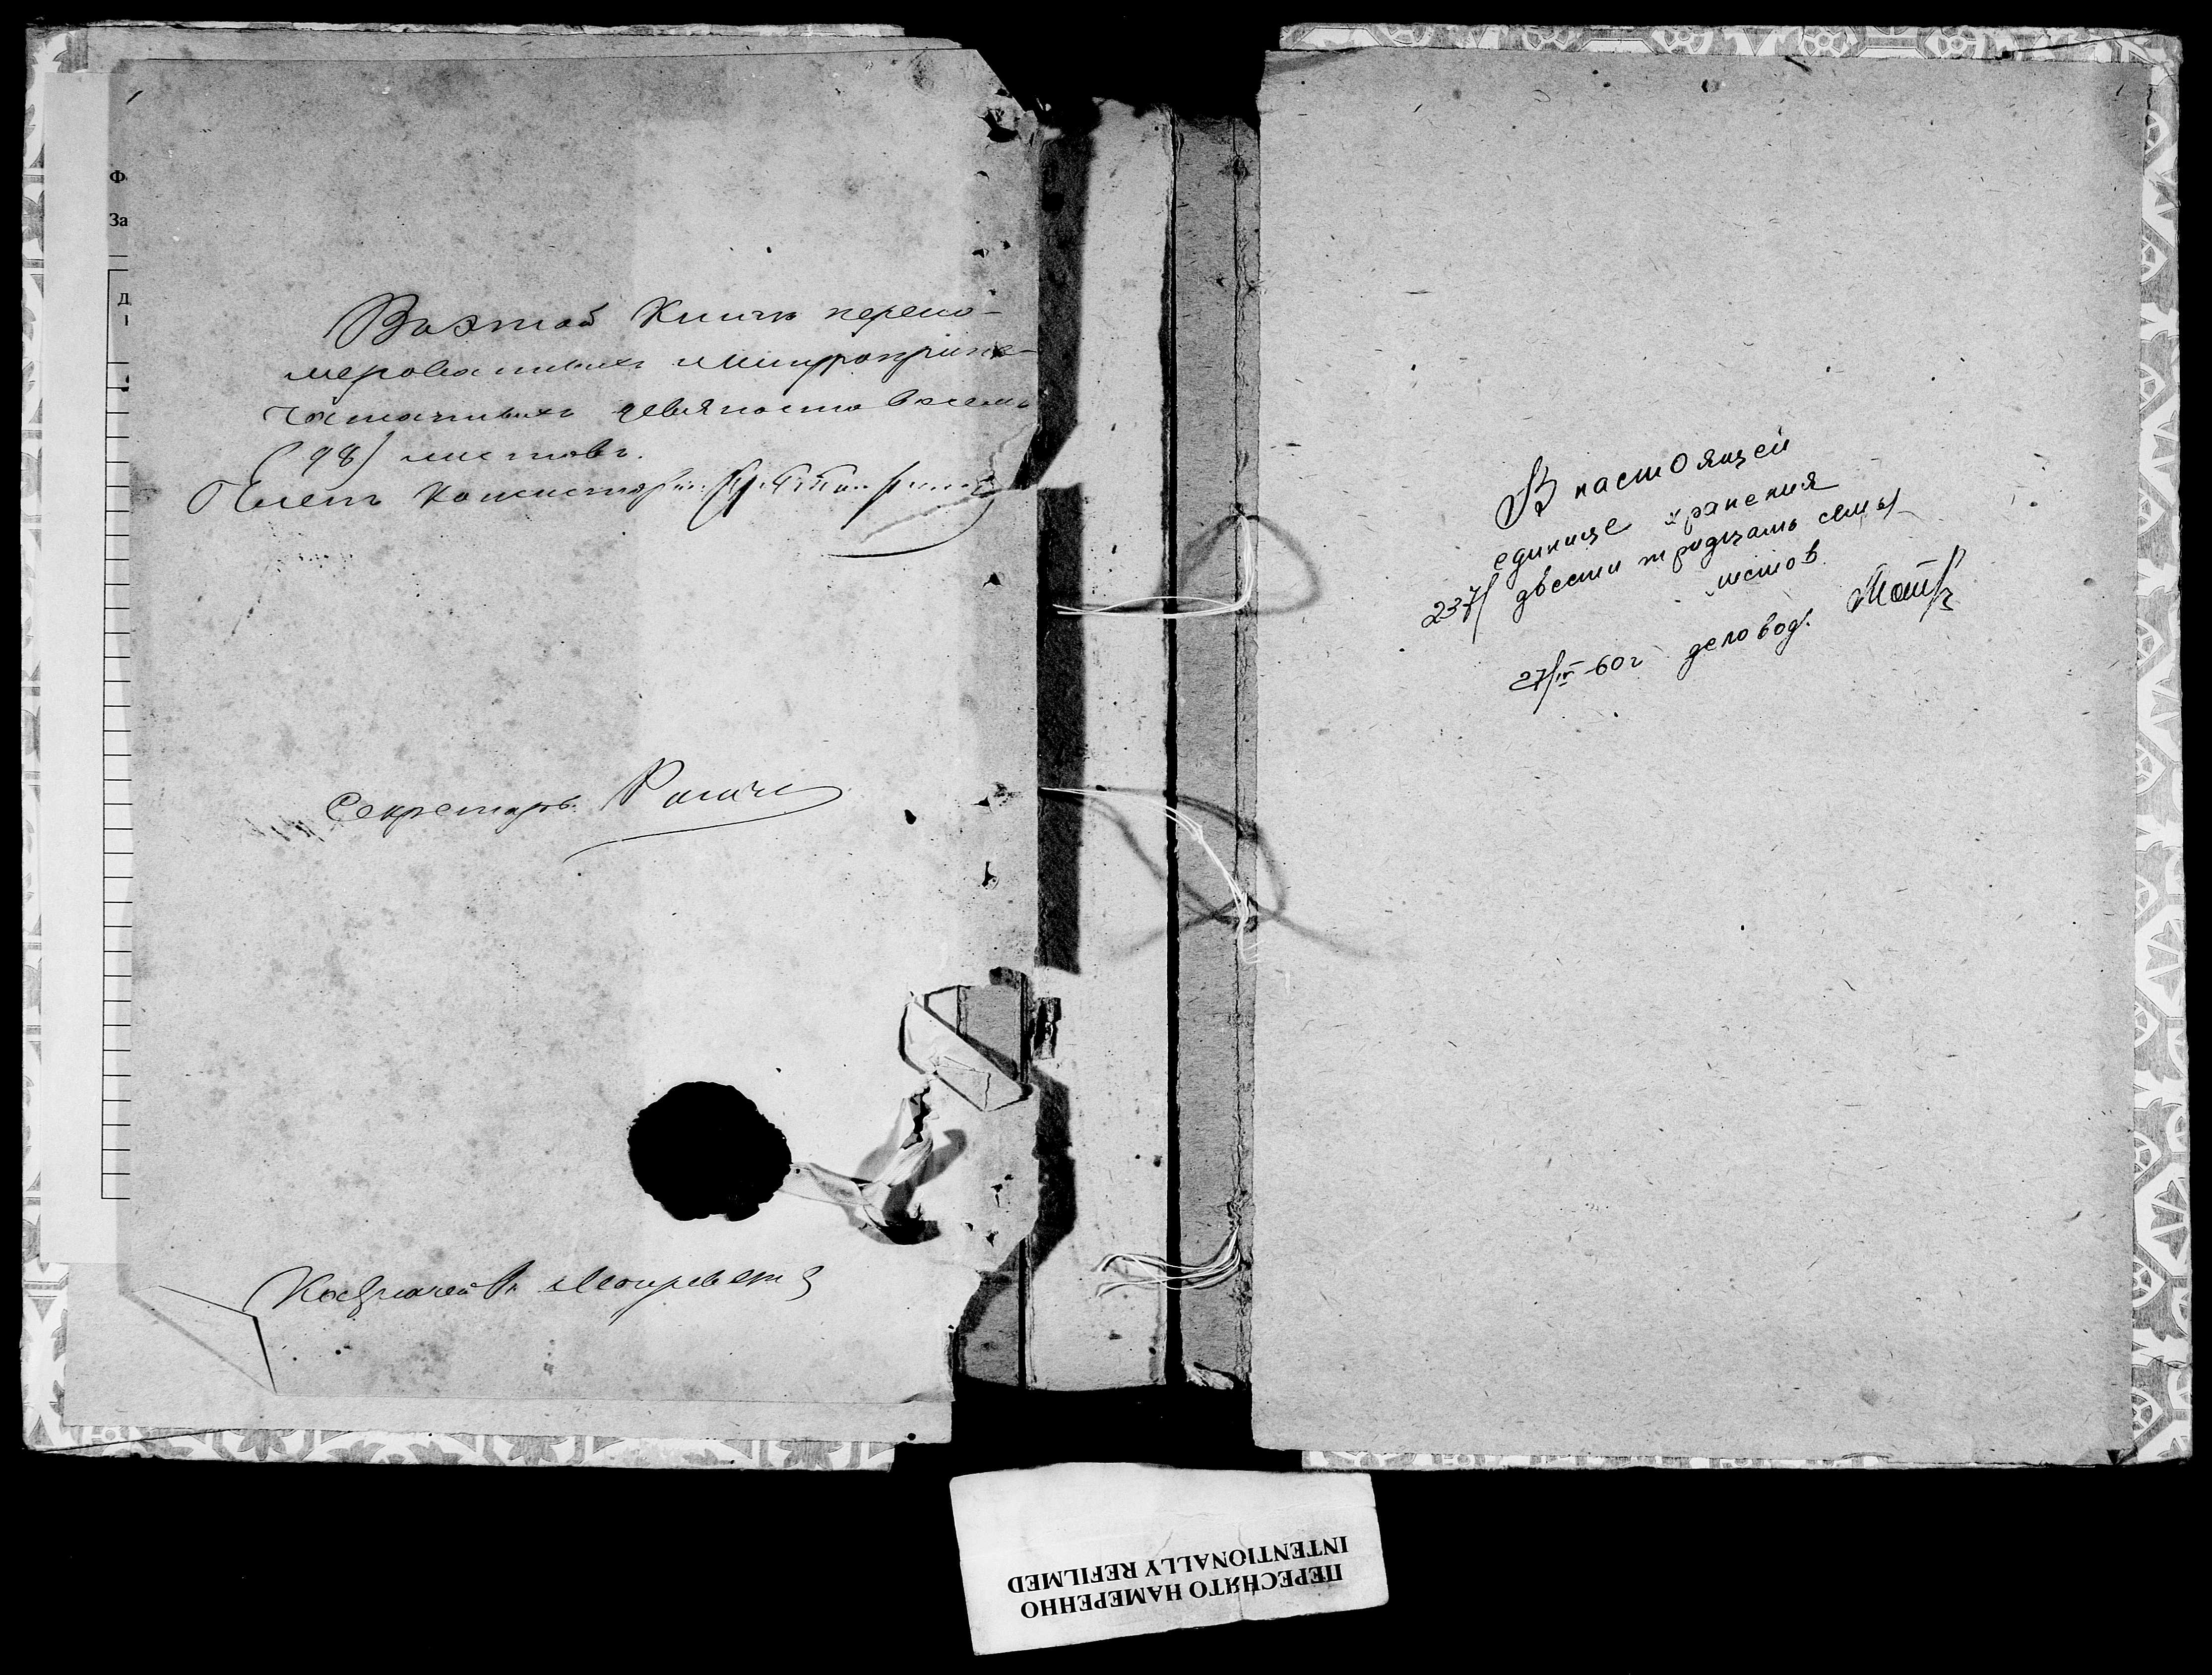 Въ этой Книгѣ перено-
мерованныхъ и шнуроприпе-
чатанныхъ девяносто восемь
(98) листовъ.
Членъ Консисторіи
Секретарь
Ф
За
Д
В настоящей
единице хранения
237/ двести тридцать семь/
листов.
27/IV-60г деловод.
ПЕРЕСНЯТО НАМЕРЕННО
INTENTIONALLY REFILMED